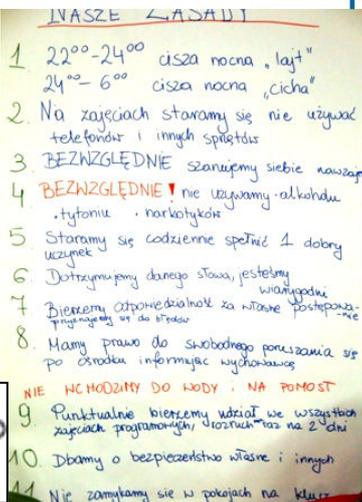 NASZE ZASADY
1. 22⁰⁰-24⁰⁰ cisza nocna „lajt"
24⁰⁰- 6⁰⁰ cisza nocna „cicha"
2. Na zajęciach staramy się nie używać
telefonów i innych sprzętów
3. BEZWZGLĘDNIE szanujemy siebie nawzaje
4 BEZWZGLĘDNIE! nie używamy · alkoholu
· tytoniu · narkotyków
5 Staramy się codziennie spełnić 1 dobry
uczynek
6 Dotrzymujemy danego słowa, jesteśmy
wiarygodni
7 Bierzemy odpowiedzialność za własne postępowa-
przyznajemy się do błędów -nie
8. Mamy prawo do swobodnego poruszania się
po ośrodku informując wychowawcę
NIE WCHODZIMY DO WODY i NA POMOST
9. Punktualnie bierzemy udział we wszystkich
zajęciach programowych, raz na 2 dni
10. Dbamy o bezpieczeństwo własne i innych
11 Nie zamykamy się w pokojach na klucz